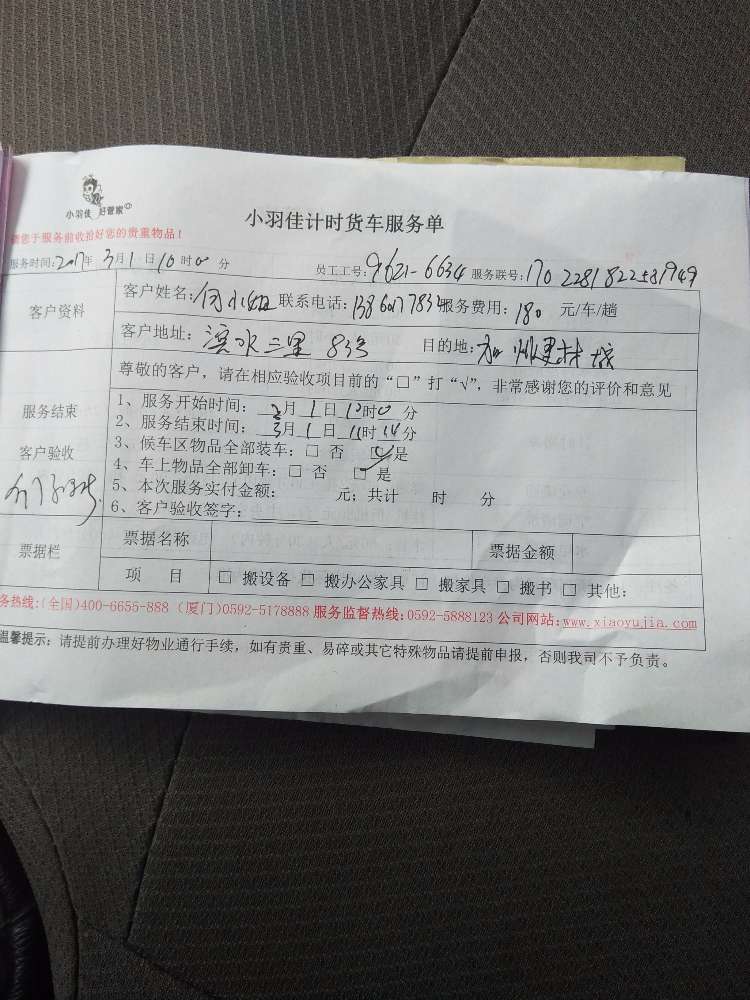 小羽佳 好管家
小羽佳计时货车服务单
请您于服务前收拾好您的贵重物品！
服务时间：2017年3月1日10时00分 员工工号：9621-6634 服务联号：1702281822581949
客户资料
客户姓名：何小姐 联系电话： 服务费用：180 元/车/趟
客户地址：滨水二里 83号 目的地： 建材城
尊敬的客户，请在相应验收项目前的“□”打“√”，非常感谢您的评价和意见
服务结束
客户验收
1、服务开始时间： 月1日10时0分
2、服务结束时间：3月1日11时14分
3、候车区物品全部装车：□ 否 ☑是
4、车上物品全部卸车：□ 否 ☑是
5、本次服务实付金额： 元；共计 时 分
6、客户验收签字：
票据栏
票据名称 票据金额
项 目 □ 搬设备 □ 搬办公家具 □ 搬家具 □ 搬书 □ 其他：
务热线：(全国)400-6655-888 (厦门)0592-5178888 服务监督热线：0592-5888123 公司网站：www.xiaoyujia.com
温馨提示：请提前办理好物业通行手续，如有贵重、易碎或其它特殊物品请提前申报，否则我司不予负责。